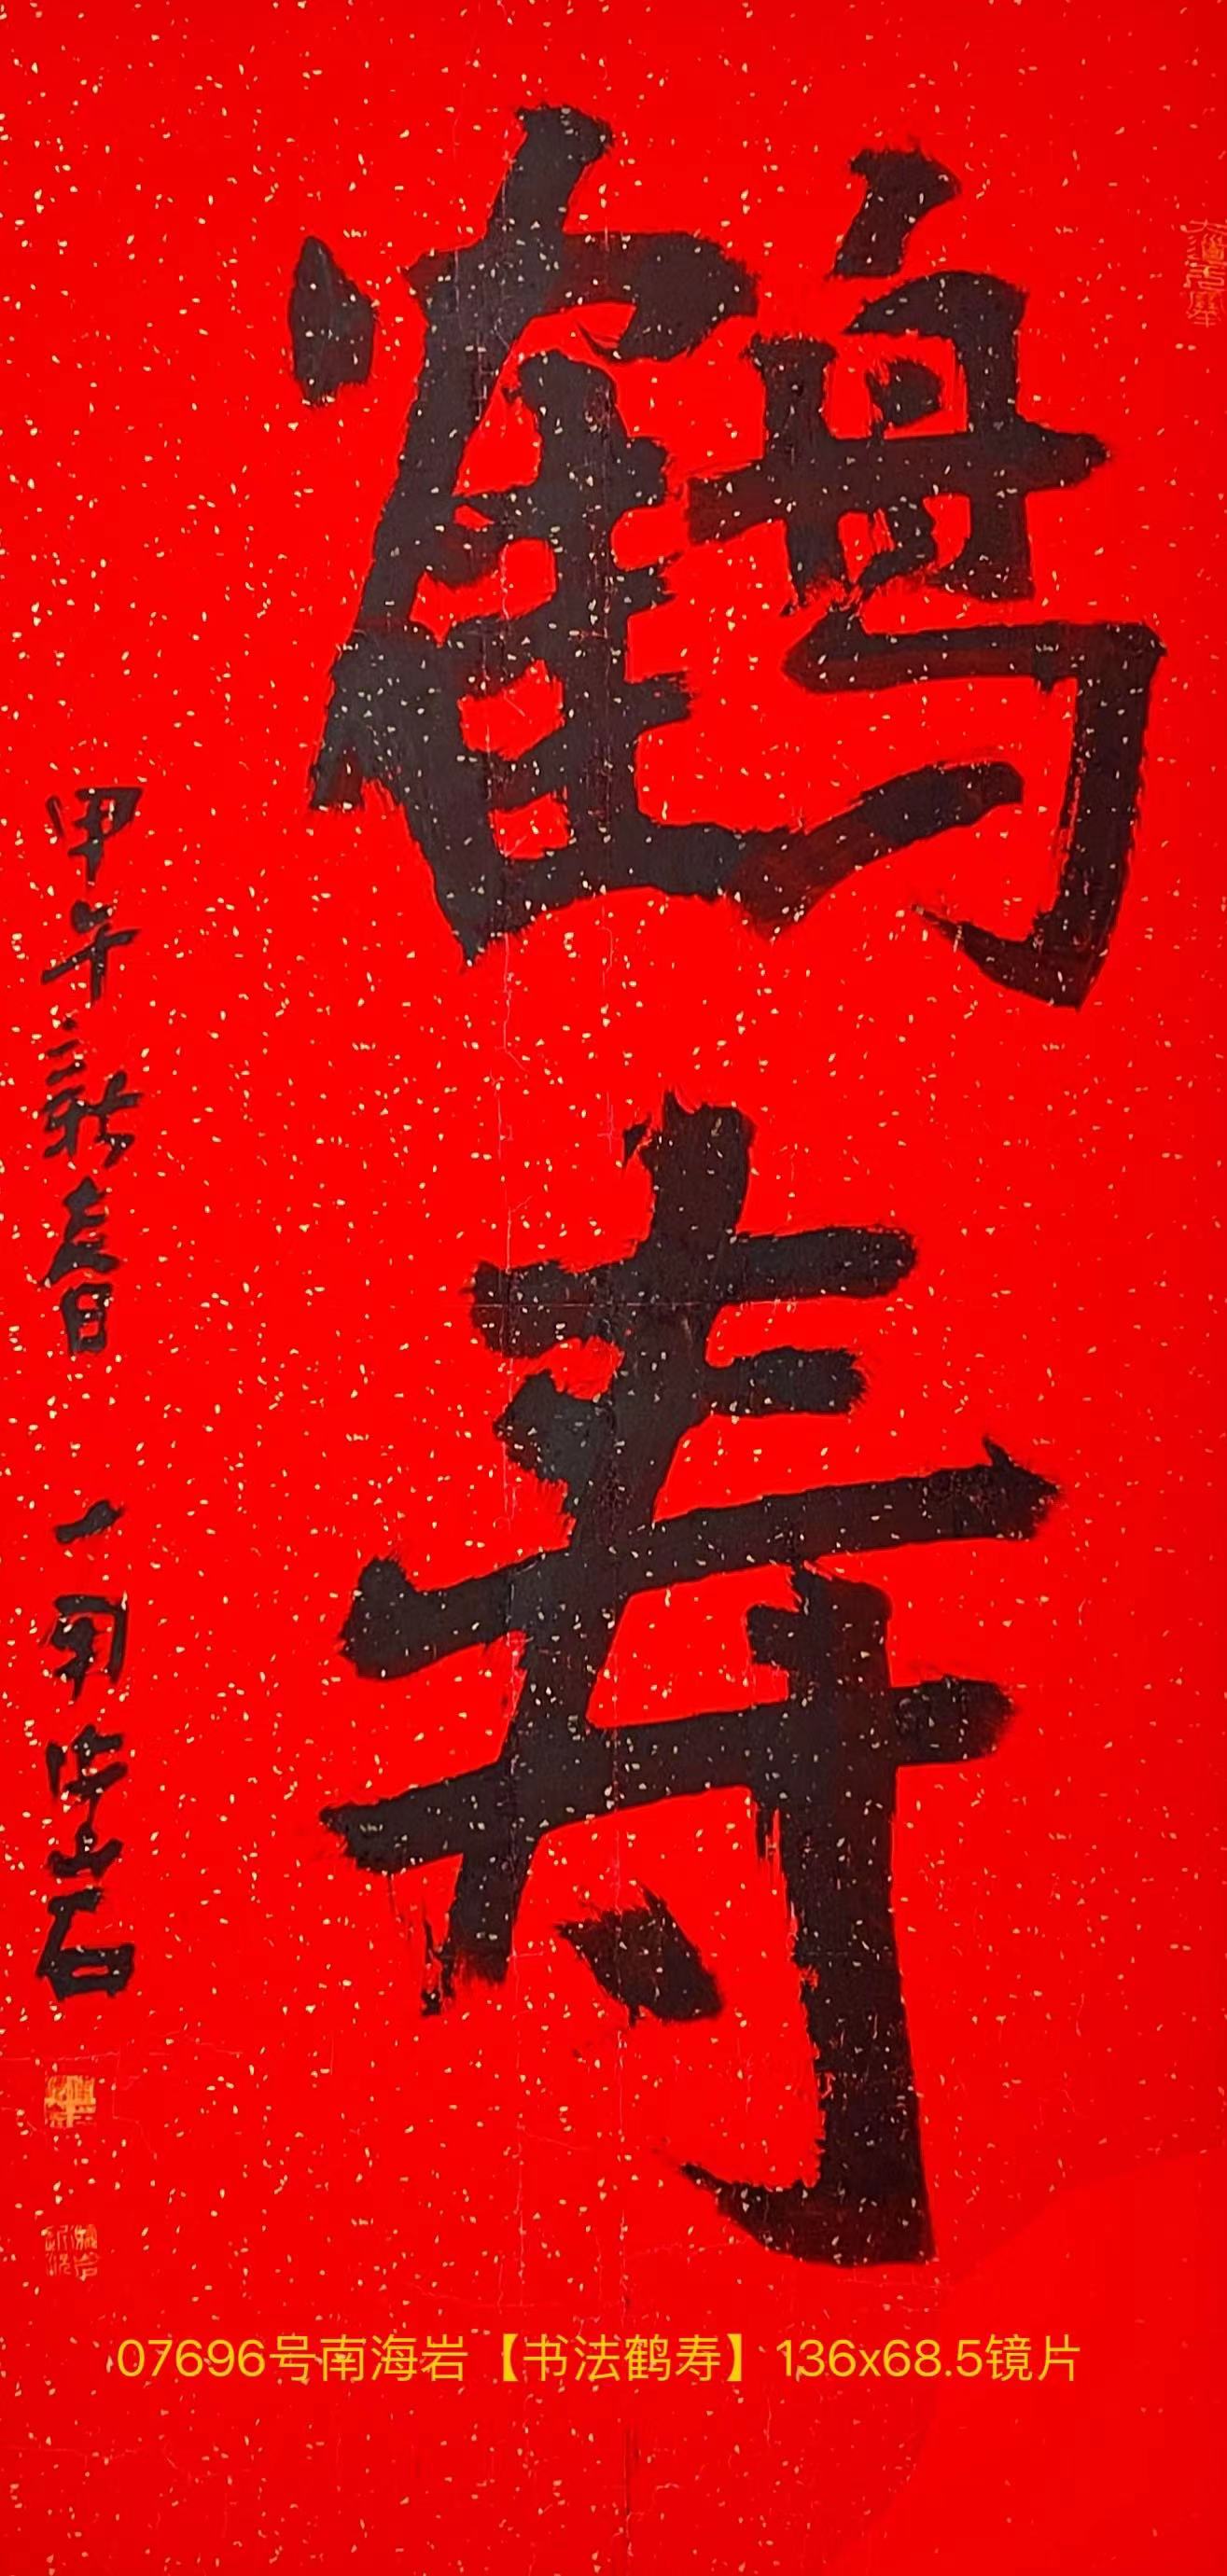 鹤寿
甲午新春日 一周海岩
07696号南海岩【书法鹤寿】136x68.5镜片